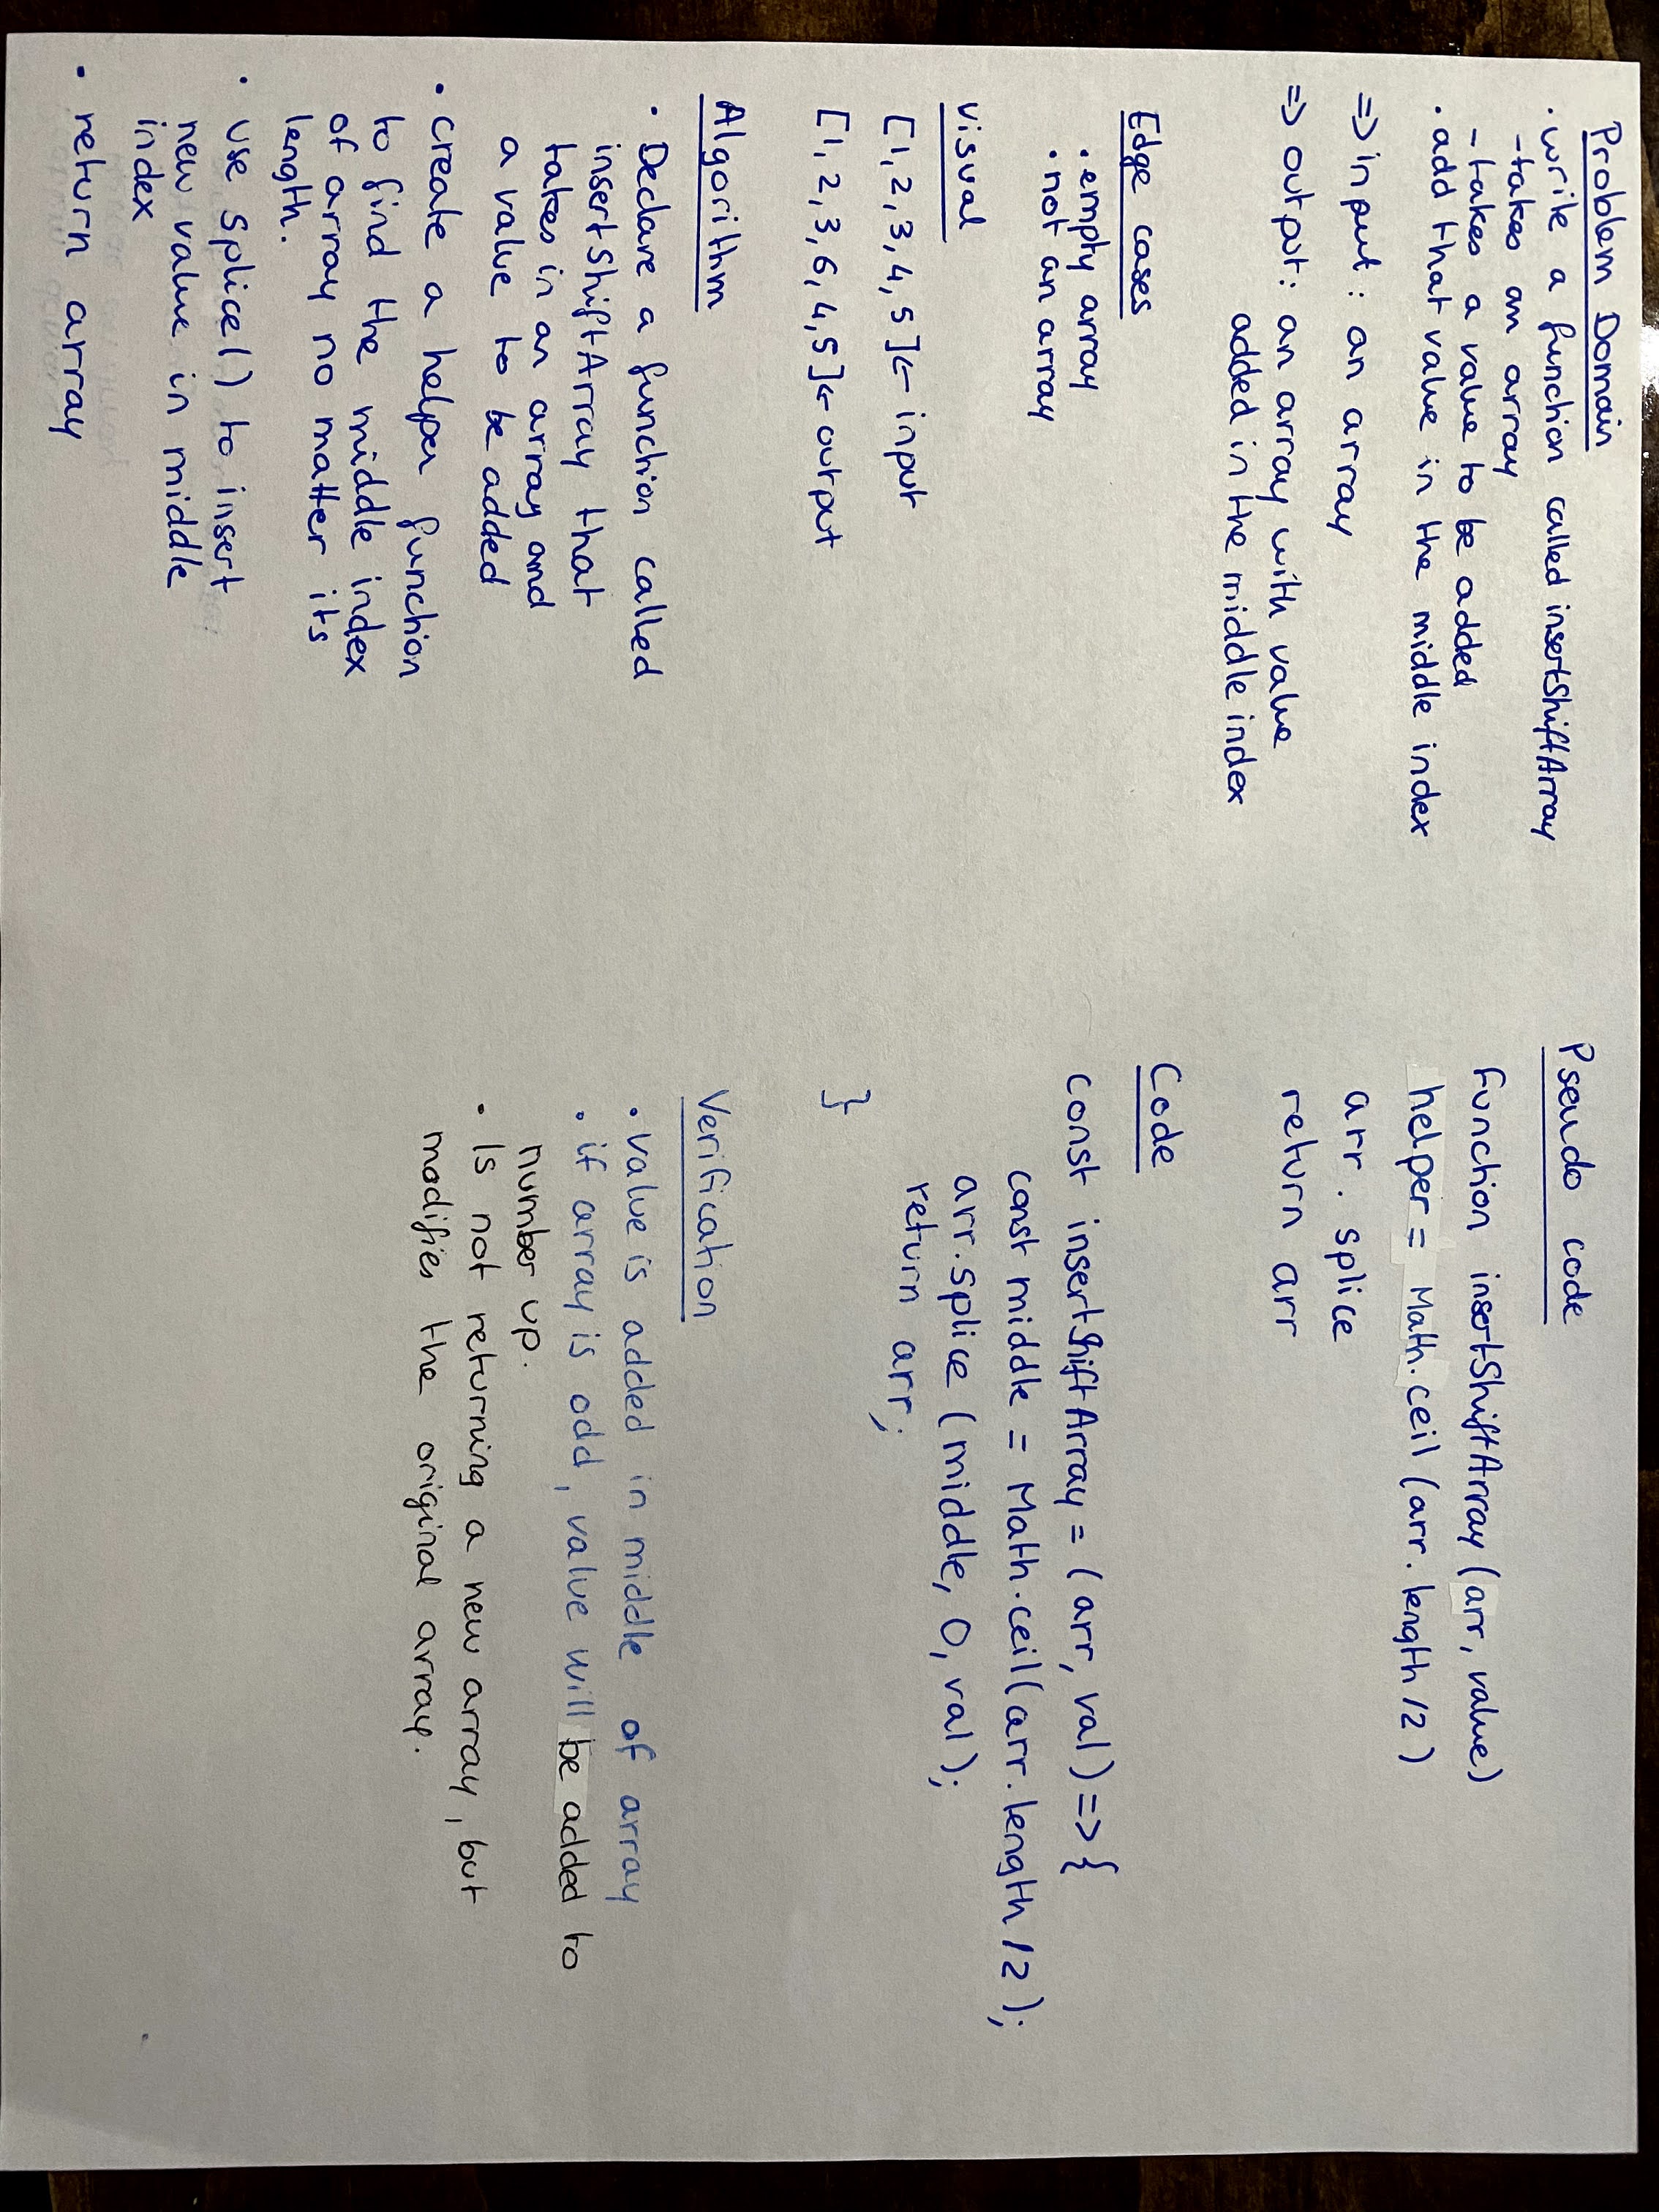 Problem Domain
· write a function called insertShiftArray
- takes an array
- takes a value to be added
· add that value in the middle index
=> input : an array
=> output: an array with value
added in the middle index
Edge cases
· empty array
· not an array
Visual
[1, 2, 3, 4, 5] ← input
[1, 2, 3, 6, 4, 5] ← output
Algorithm
· Declare a function called
insertShiftArray that
takes in an array and
a value to be added
· create a helper function
to find the middle index
of array no matter its
length.
· use splice() to insert
new value in middle
index
· return array
Pseudo code
function insertShiftArray (arr, value)
helper = Math.ceil (arr.length / 2)
arr. splice
return arr
Code
const insertShiftArray = (arr, val) => {
const middle = Math.ceil(arr.length / 2);
arr.splice (middle, 0, val);
return arr;
}
Verification
· value is added in middle of array
· if array is odd, value will be added to
number up.
· Is not returning a new array, but
modifies the original array.